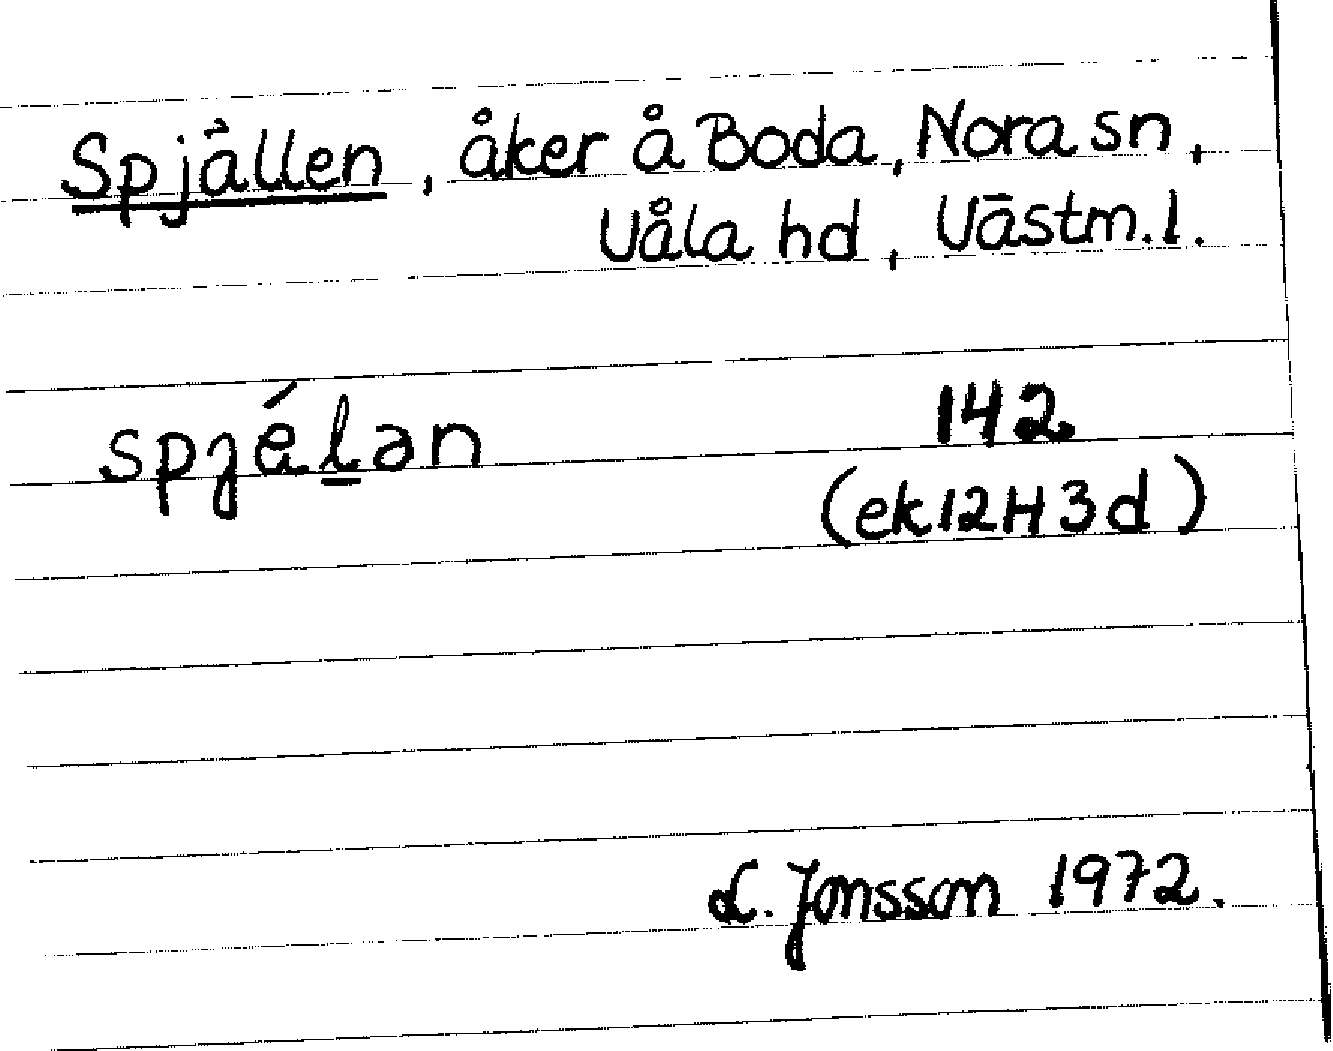 Spjällen, åker å Boda, Nora sn,
Våla hd, Västm. l.
spjélan 142
(ek 12H3d)
L. Jonsson 1972.